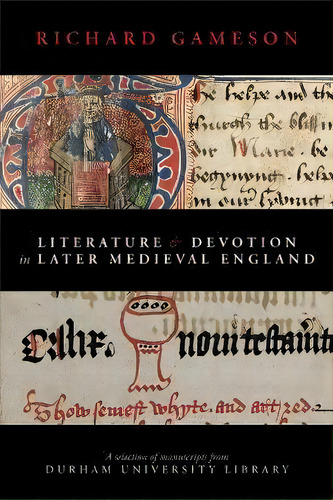 RICHARD GAMESON
he helpe and th
church the blissi
Marie. be
Begynyng. helpe
in our
LITERATURE & DEVOTION
in LATER MEDIEVAL ENGLAND
Calix. noui testamt
Thow semest whyte. and art red.
A selection of manuscripts from
DURHAM UNIVERSITY LIBRARY